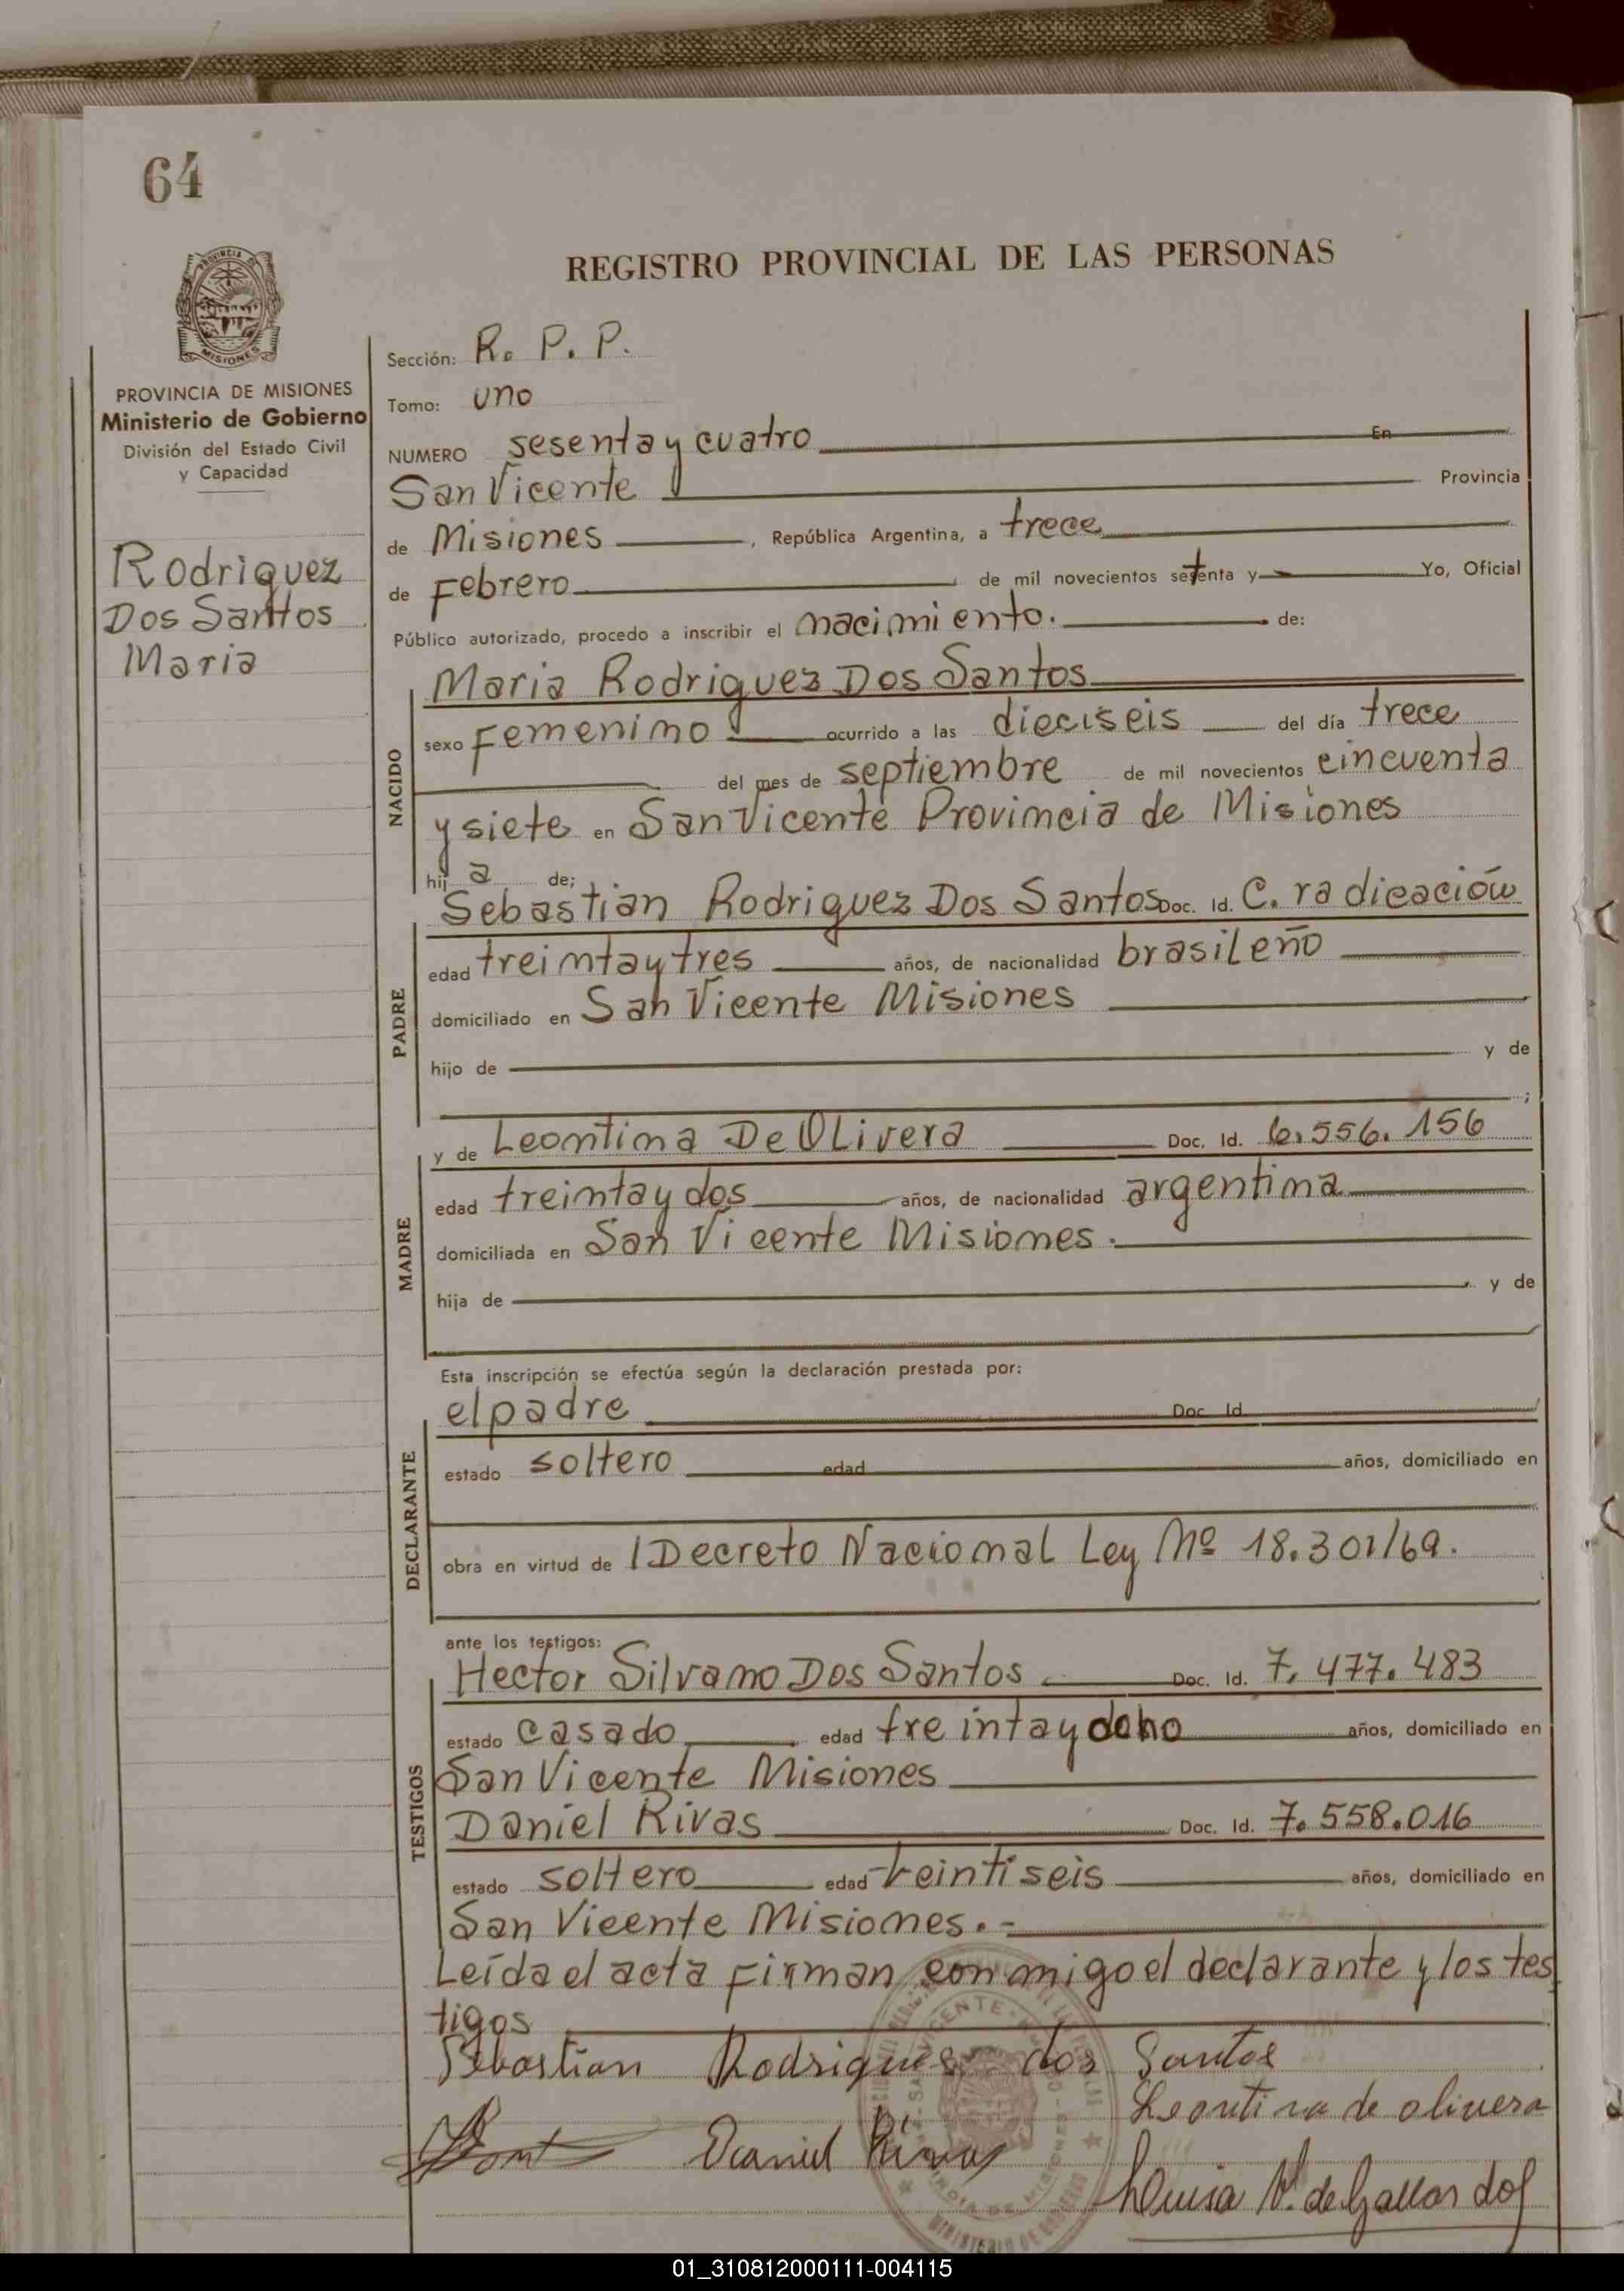 64
REGISTRO PROVINCIAL DE LAS PERSONAS
PROVINCIA DE MISIONES
Ministerio de Gobierno
División del Estado Civil
y Capacidad
Rodriquez
Dos Santos
Maria
Sección: R. P. P.
Tomo: uno
NUMERO sesenta y cuatro En
San Vicente Provincia
de Misiones , República Argentina, a trece
de Febrero de mil novecientos setenta y Yo, Oficial
Público autorizado, procedo a inscribir el nacimiento. de:
NACIDO
Maria Rodriguez Dos Santos
sexo Femenino ocurrido a las dieciseis del día trece
del mes de septiembre de mil novecientos cincuenta
y siete en San Vicente Provincia de Misiones
hij a de;
PADRE
Sebastian Rodriguez Dos Santos Doc. Id. C. radicación
edad treinta y tres años, de nacionalidad brasileño
domiciliado en San Vicente Misiones
hijo de y de
;
MADRE
y de Leontina De OLivera Doc. Id. 6.556.156
edad treinta y dos años, de nacionalidad argentina
domiciliada en San Vicente Misiones.
hija de y de
Esta inscripción se efectúa según la declaración prestada por:
DECLARANTE
el padre Doc. Id.
estado soltero edad años, domiciliado en
obra en virtud de l Decreto Nacional Ley Nº 18.301/69.
ante los testigos:
TESTIGOS
Hector Silvano Dos Santos Doc. Id. 7.477.483
estado casado edad treinta y ocho años, domiciliado en
San Vicente Misiones
Daniel Rivas Doc. Id. 7.558.016
estado soltero edad veintiseis años, domiciliado en
San Vicente Misiones.-
Leída el acta firman conmigo el declarante y los tes
tigos
Sebastian Rodrigues dos Santos
Leontina de olivera
Daniel Rivas
de Gallardo
01_310812000111-004115